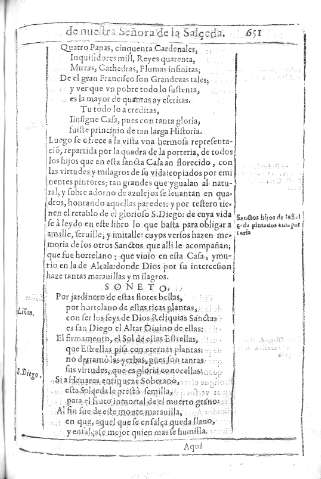 de nuestra Señora de la Salçeda. 651
Quatro Papas, cinquenta Cardenales,
Inquisidores mill, Reyes quarenta,
Mitras, Cathedras, Plumas infinitas;
De el gran Francisco son Grandezas tales;
y ver que vn pobre todo lo sustenta,
es la mayor de quantas ay escritas.
Tu todo lo acreditas,
Insigne Casa, pues con tanta gloria,
fuiste principio de tan larga Historia.
Luego se ofrece a la vista vna hermosa represente-
ció, repartida por la quadra de la porteria, de todos
los hijos que en esta sancta Casa an florecido, con
las virtudes y milagros de su vida copiados por emi
nentes pintores; tan grandes que ygualan al natu-
ral, y sobre adorno de azulejos se leuantan en qua-
dros, honrando aquellas paredes: y por testero tie-
nen el retablo de el glorioso S. Diego: de cuya vida
se á leydo en este libro lo que basta para obligar a
amalle, seruille, y imitalle: cuyos versos hazen me-
moria de los otros Sanctos que alli le acompañan;
que fue hortelano; que viuio en esta Casa, y mu-
rio en la de Alcala: donde Dios por su intercesion
haze tantas marauillas y milagros.
Sanctos hijos de la Sal
SONETO,
Por jardinero de estas flores bellas,
por hortelano de estas ricas plantas,
con ser los seys de Dios Reliquias Sanctas
es san Diego el Altar Diuino de ellas:
El firmamento, el Sol de estas Estrellas,
que Estrellas pisa con eternas plantas:
no derramó las yerbas, pues son tantas
sus virtudes, que es gloria conocellas.
S. Diego.
Si a Henares enriqueze Soberano,
esta Salçeda le prestó semilla,
para el fruto inmortal de el muerto grano:
Al fin fue de este monte marauilla,
en que, aquel que se ensalça queda llano,
y ensalçase mejor quien mas se humilla.
Aqui